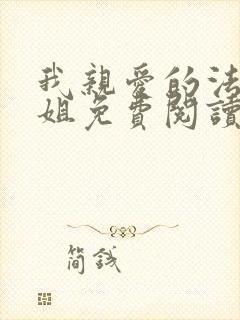 我親愛的法
姐免費閱讀
簡錢